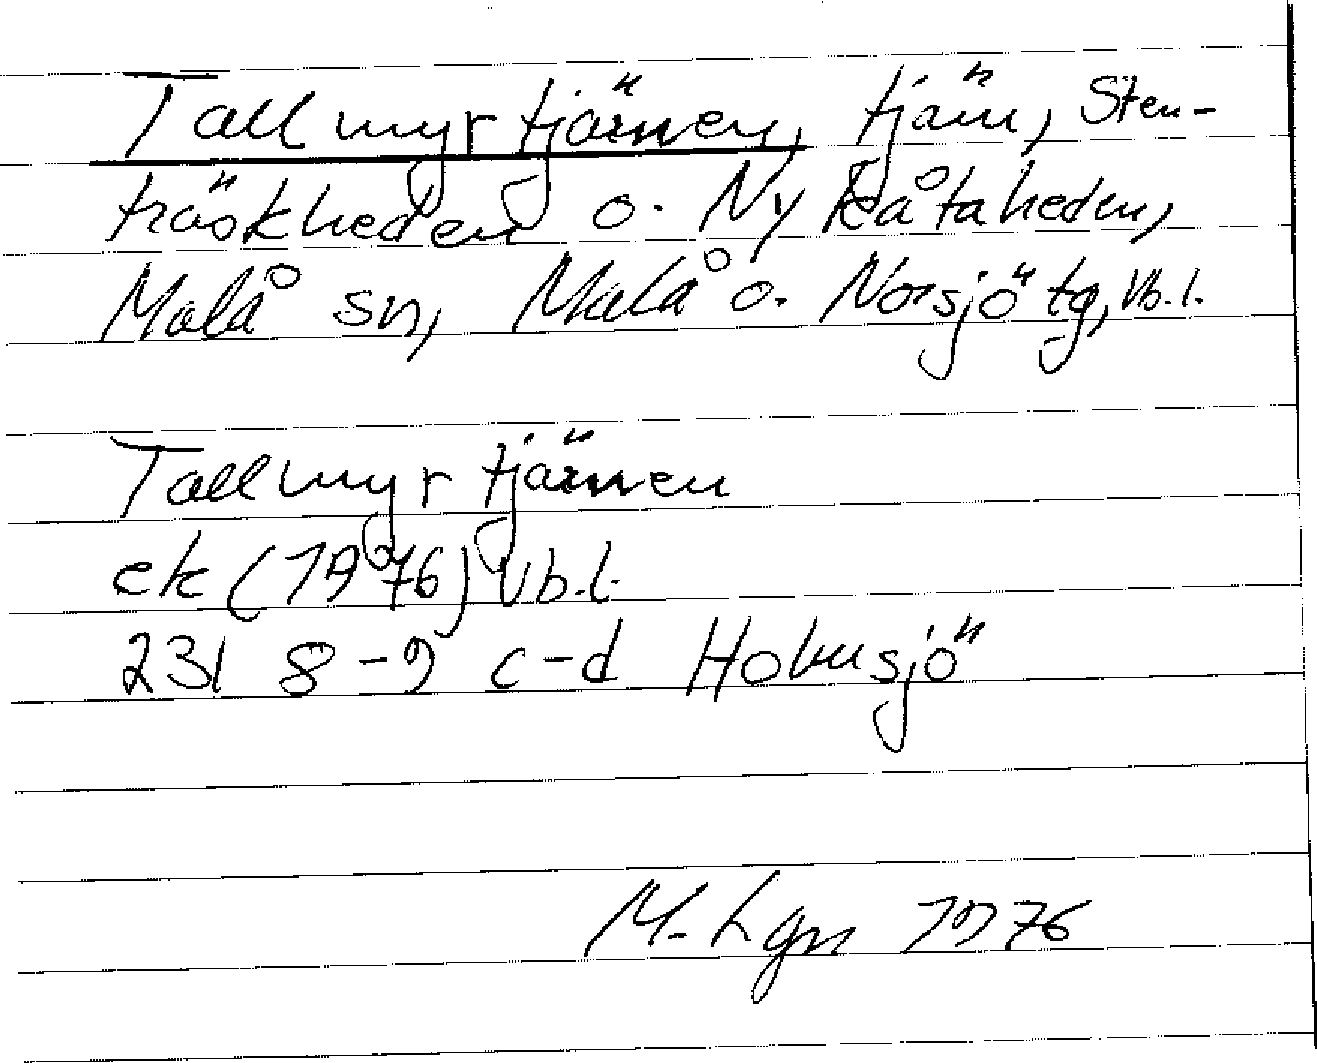 Tallmyrtjärnen, tjärn, Sten-
träskheden o. Nykåtaheden,
Malå sn, Malå o. Norsjö tg, Vb.l.
Tallmyrtjärnen
ek (1976) Vb.l.
23I 8-9 c-d Hobusjö
M. Lgn 1976